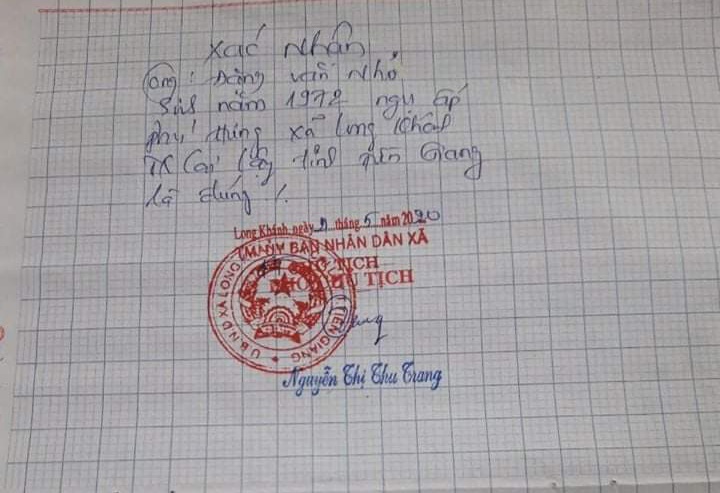 Xác Nhận
Ông : Đặng văn Nhỏ
Sinh năm 1972 ngụ ấp
phú hưng xã Long Khánh
TX Cai Lậy tỉnh tiền Giang
là đúng /.
Long Khánh, ngày tháng 5 năm 2020
TM. ỦY BAN NHÂN DÂN XÃ
CHỦ TỊCH
PHÓ CHỦ TỊCH
U.B.N.D XÃ LONG
T. TIỀN GIANG
Nguyễn Thị Thu Trang